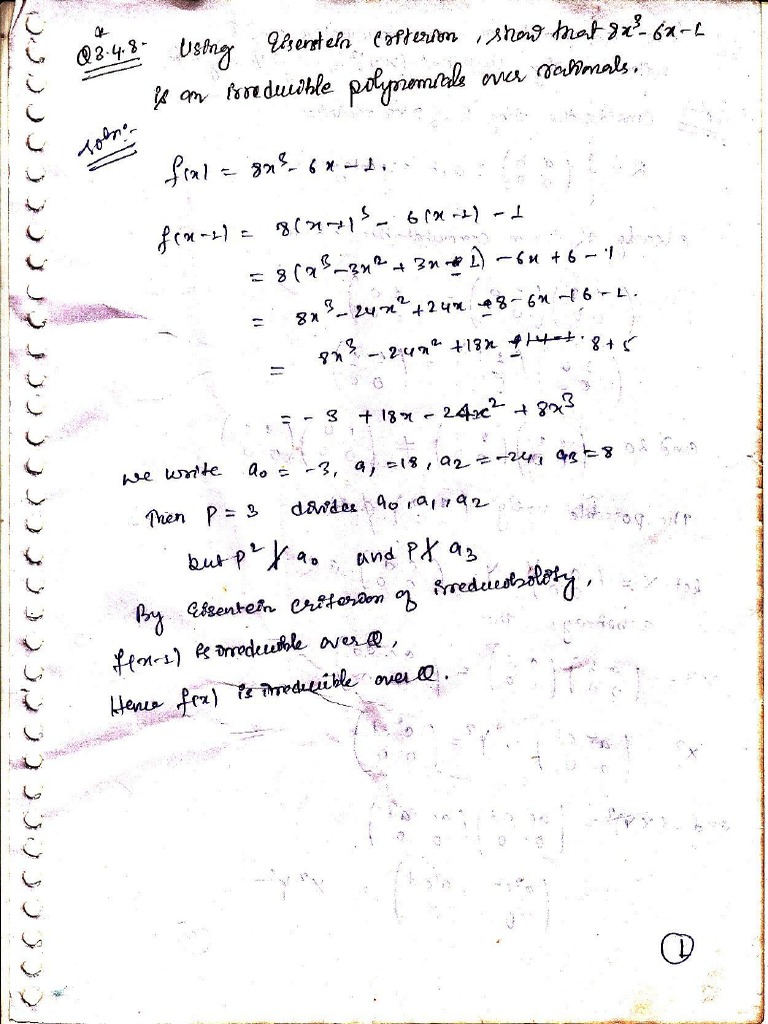 Q3.4.8- Using Eisenstein Criterion, show that 8x³-6x-1
is an irreducible polynomials over rationals.
soln:-
f(x) = 8x³-6x-1.
f(x-1) = 8(x-1)³ - 6(x-1) - 1
= 8(x³-3x²+3x-1) - 6x+6-1
= 8x³-24x²+24x-8-6x+6-1.
= 8x³-24x²+18x-8+5
= -3+18x-24x²+8x³
we write a₀=-3, a₁=18, a₂=-24, a₃=8
Then P=3 divides a₀, a₁, a₂
but p² ∤ a₀ and P ∤ a₃
By Eisentein criterion of irreducibility,
f(x-1) is irreducible over Q,
Hence f(x) is irreducible over Q.
1